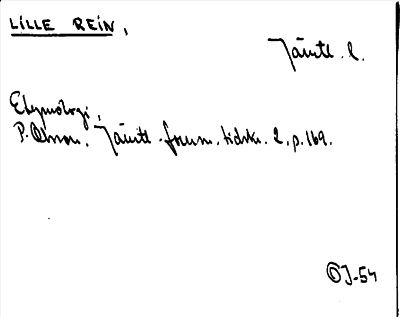 LILLE REIN,
Jämtl. l.
Etymologi,
P. Olsson, Jämtl. fornm. tidskr. 2, p. 169.
OJ-54